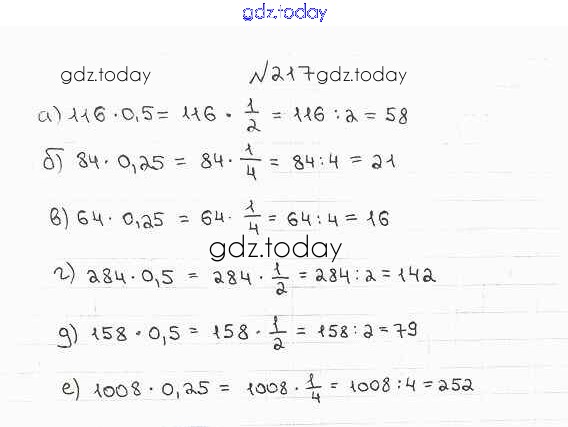 gdz.today
gdz.today №217 gdz.today
а) 116 · 0,5 = 116 · 1/2 = 116 : 2 = 58
б) 84 · 0,25 = 84 · 1/4 = 84 : 4 = 21
в) 64 · 0,25 = 64 · 1/4 = 64 : 4 = 16
gdz.today
г) 284 · 0,5 = 284 · 1/2 = 284 : 2 = 142
д) 158 · 0,5 = 158 · 1/2 = 158 : 2 = 79
е) 1008 · 0,25 = 1008 · 1/4 = 1008 : 4 = 252